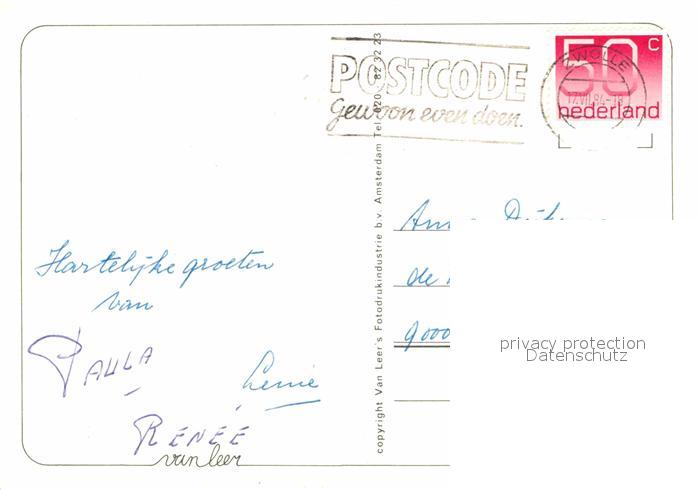 POSTCODE
Gewoon even doen.
ZWOLLE
17.VII.84-18
50 c
nederland
Hartelijke groeten
van
PAULA
Lenie
RENÉE
van leer
copyright Van Leer's Fotodrukindustrie b.v. Amsterdam Tel. 020 - 82 32 23
de
9000
privacy protection
Datenschutz